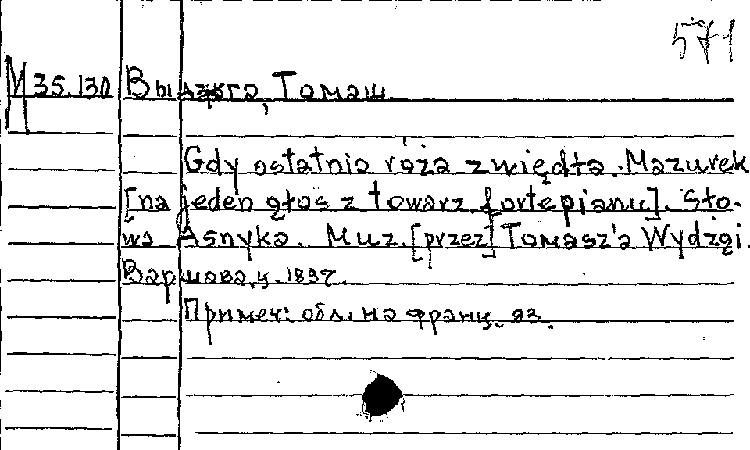 571
М 35.130 Выдзга, Томаш.
Gdy ostatnia róża zwiędła. Mazurek
[na jeden głos z towarz fortepianu]. Sło-
wa Asnyka. Muz. [przez] Tomasz'a Wydżgi.
Варшава, ц. 189?.
Примеч: обл. на франц. яз.